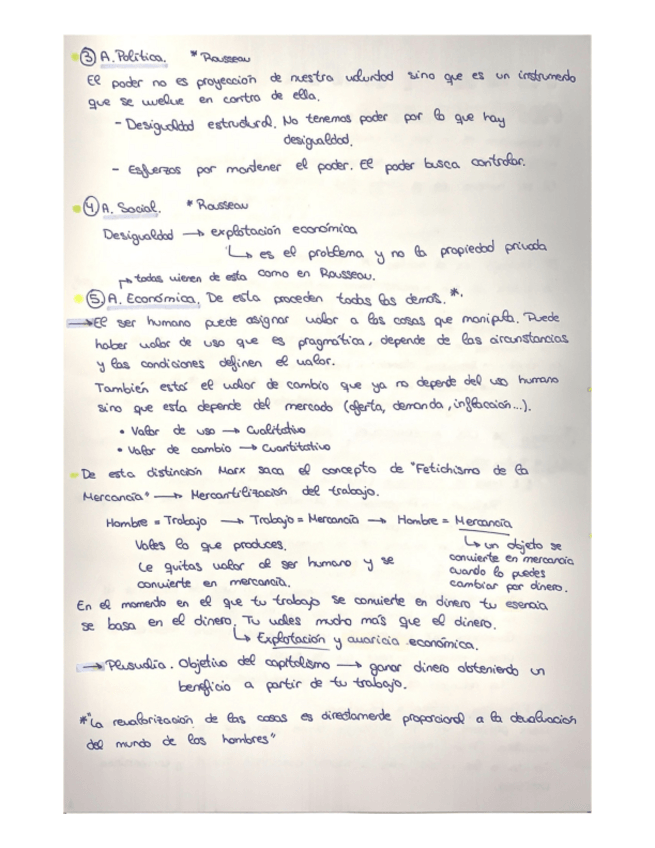 ③ A. Política. * Rousseau
El poder no es proyección de nuestra voluntad sino que es un instrumento
que se vuelve en contra de ella.
- Desigualdad estructural. No tenemos poder por lo que hay
desigualdad.
- Esfuerzos por mantener el poder. El poder busca controlar.
④ A. Social. * Rousseau
Desigualdad → explotación económica
↳ es el problema y no la propiedad privada
↱ todas vienen de esta como en Rousseau.
⑤ A. Económica. De esta proceden todas las demás. *.
→ El ser humano puede asignar valor a las cosas que manipula. Puede
haber valor de uso que es pragmática, depende de las circunstancias
y las condiciones definen el valor.
También está el valor de cambio que ya no depende del uso humano
sino que esta depende del mercado (oferta, demanda, inflacción...).
• Valor de uso → Cualitativo
• Valor de cambio → Cuantitativo
- De esta distinción Marx saca el concepto de "Fetichismo de la
Mercancía" → Mercantilización del trabajo.
Hombre = Trabajo → Trabajo = Mercancía → Hombre = Mercancía
Vales lo que produces.
Le quitas valor al ser humano y se
convierte en mercancía.
↳ un objeto se
convierte en mercancía
cuando lo puedes
cambiar por dinero.
En el momento en el que tu trabajo se convierte en dinero tu esencia
se basa en el dinero. Tu vales mucho más que el dinero.
↳ Explotación y avaricia económica.
→ Plusvalía. Objetivo del capitalismo → ganar dinero obteniendo un
beneficio a partir de tu trabajo.
*"La revalorización de las cosas es directamente proporcional a la devaluación
del mundo de los hombres"